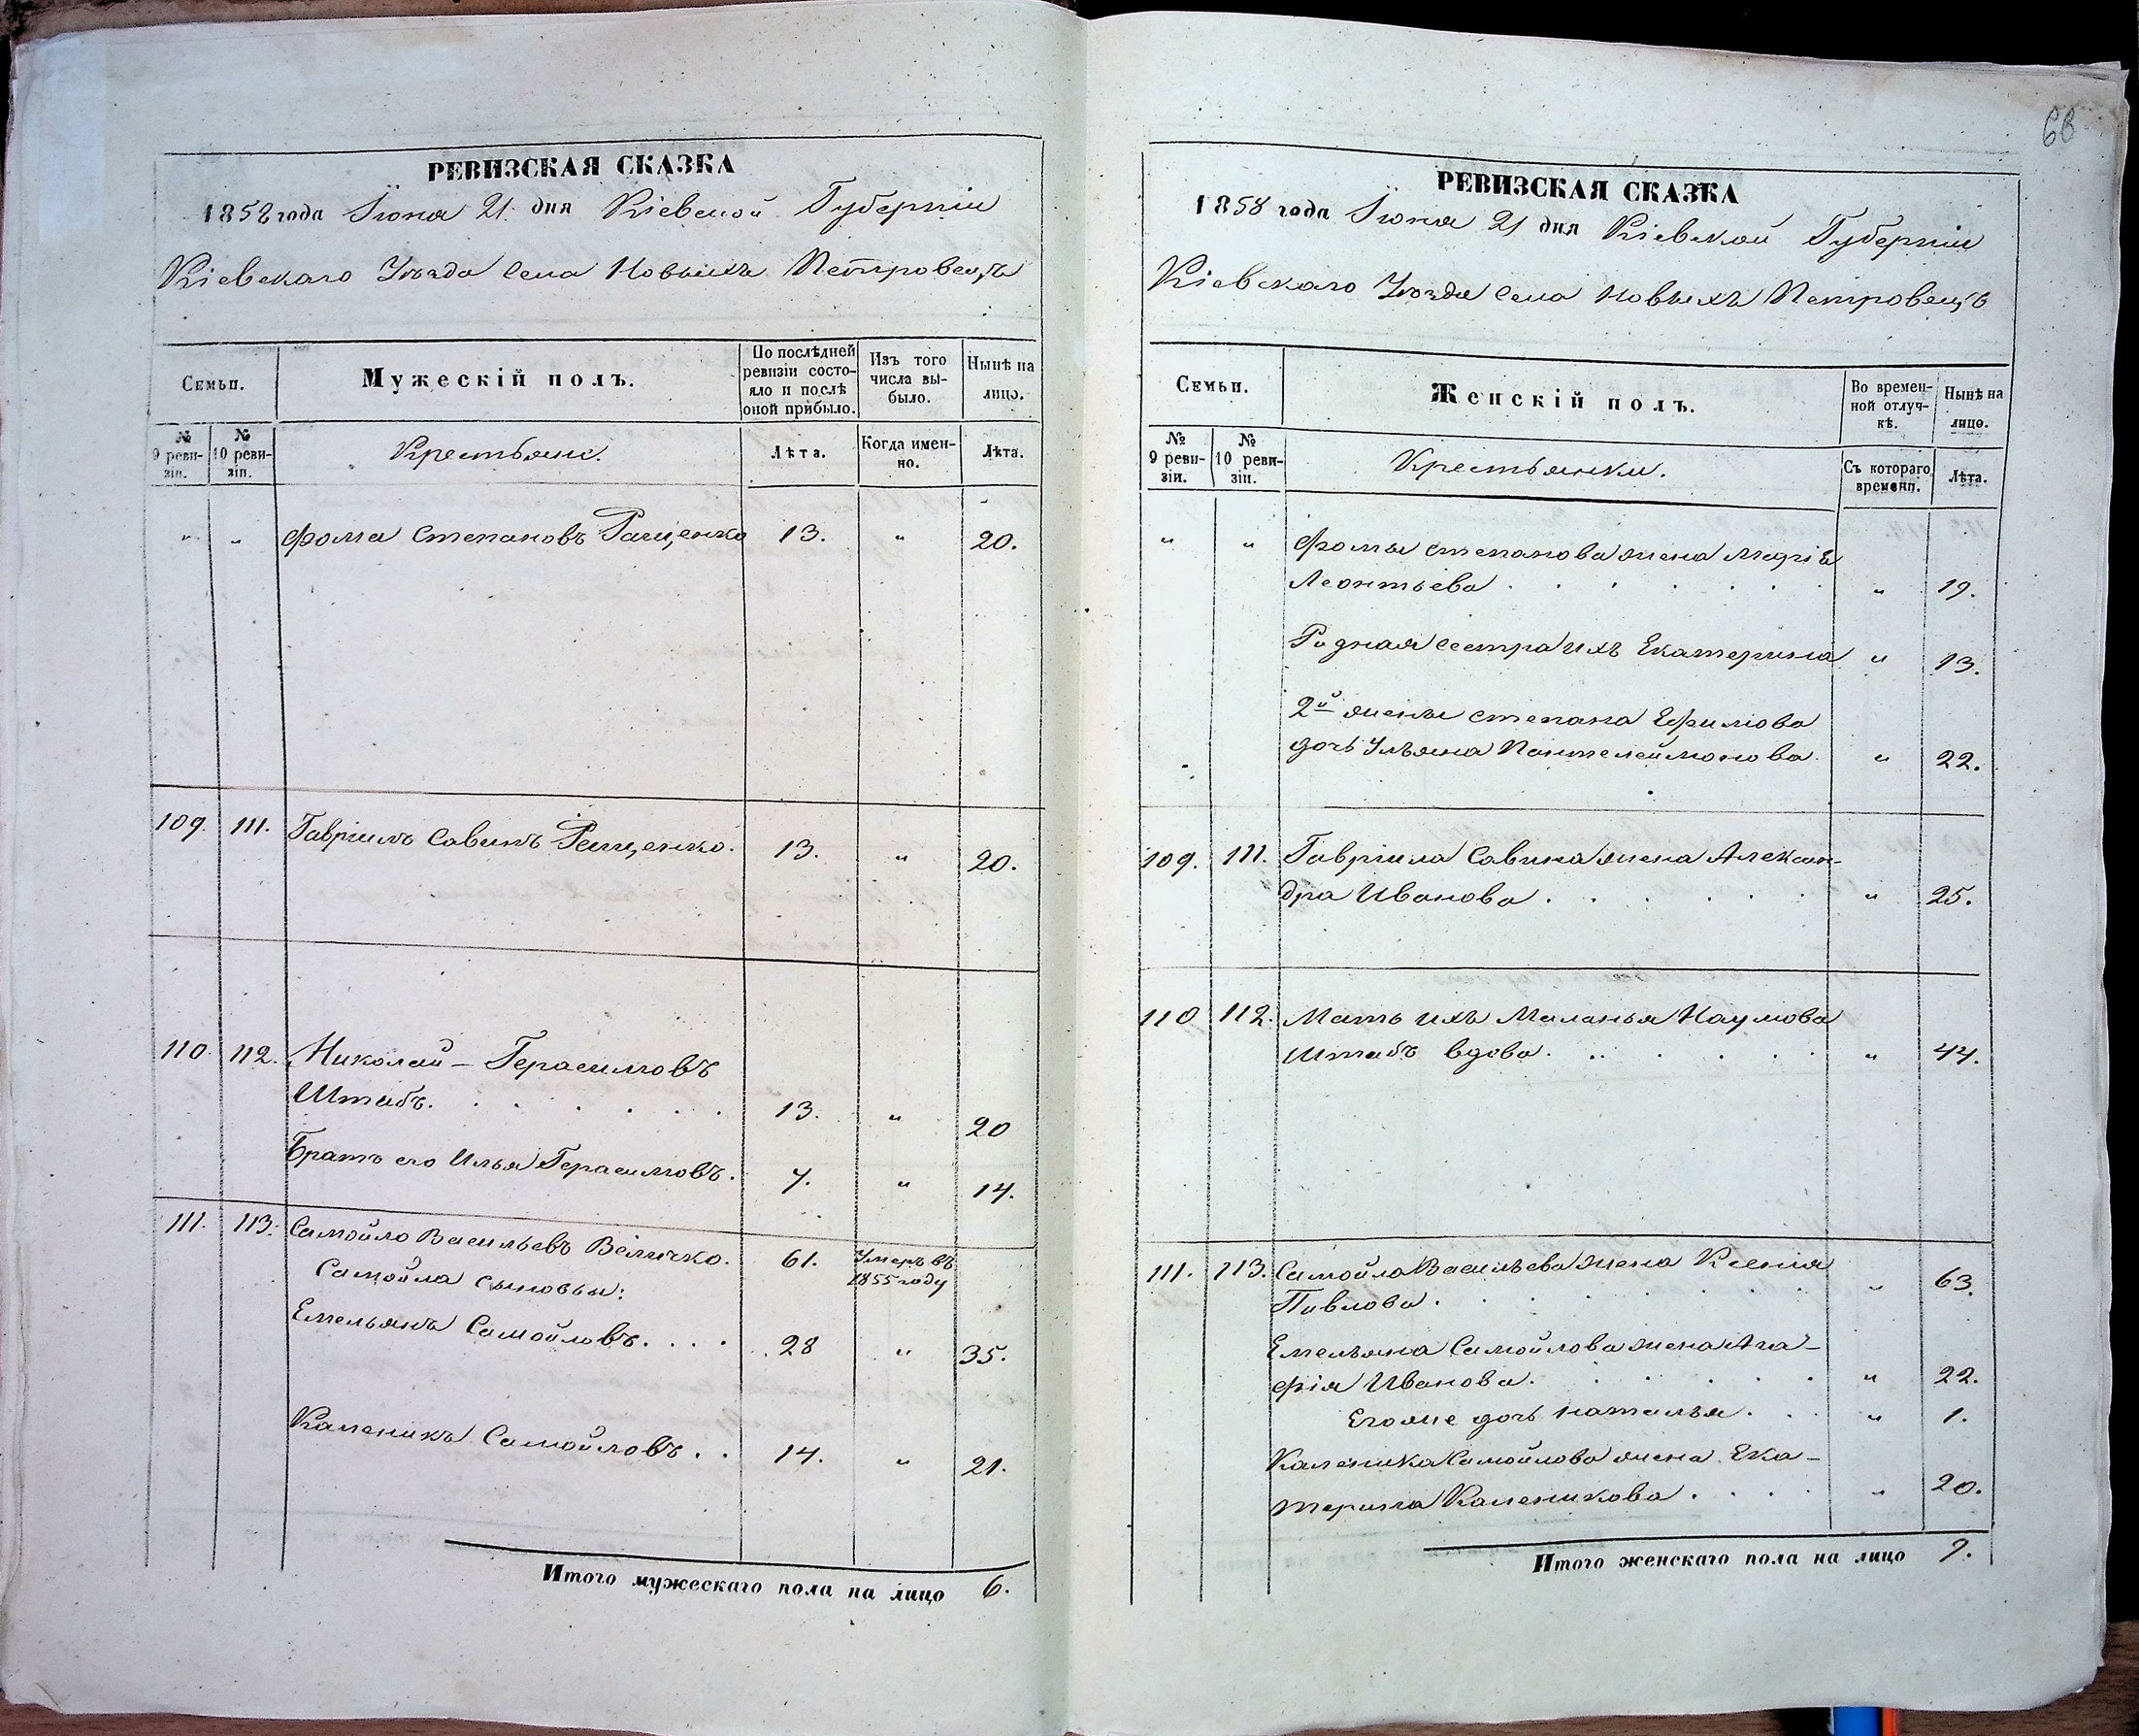 РЕВИЗСКАЯ СКАЗКА
1858 года Іюня 21. дня Кіевской Губерніи
Кіевскаго Уѣзда Села Новыхъ Петровецъ
Семьи.
Мужескій полъ.
По послѣдней ревизіи состо-
яло и послѣ
оной прибыло.
Изъ того
числа вы-
было.
Нынѣ на
лицо.
№
9 реви-
зіи.
№
10 реви-
зіи.
Крестьяне.
Лѣта.
Когда имен-
но.
Лѣта.
" " Фома Степановъ Ращенко 13. " 20.
109. 111. Гавріилъ Савинъ Рещенко. 13. " 20.
110. 112. Николай - Герасимовъ
Штабъ. 13. " 20
Братъ его Илья Герасимовъ. 7. " 14.
111. 113. Самойло Васильевъ Величко. 61. Умеръ въ
1855 году
Самойла сыновьи:
Емельянъ Самойловъ. 28 " 35.
Каленикъ Самойловъ. 14. " 21.
Итого мужескаго пола на лицо 6.
РЕВИЗСКАЯ СКАЗКА
1858 года Іюня 21 дня Кіевской Губерніи
Кіевскаго Уѣзда Села Новыхъ Петровецъ
Семьи.
Женскій полъ.
Во времен-
ной отлуч-
кѣ.
Нынѣ на
лицо.
№
9 реви-
зіи.
№
10 реви-
зіи.
Крестьянки.
Съ котораго
времени.
Лѣта.
" " Фомы Степанова жена Марія
Леонтьева " 19.
Родная сестра ихъ Екатерина " 13.
2й жены Степана Ефимова
дочь Ульяна Пантелеймонова " 22.
109. 111. Гавріила Савина жена Алексан-
дра Иванова " 25.
110 112. Мать ихъ Маланья Наумова
Штабъ вдова. " 44.
111. 113. Самойла Васильева жена Ксенія
Павлова. " 63.
Емельяна Самойлова жена Ага-
фія Иванова. " 22.
Его же дочь Наталья. " 1.
Каленика Самойлова жена Ека-
терина Каленикова. " 20.
Итого женскаго пола на лицо 9.